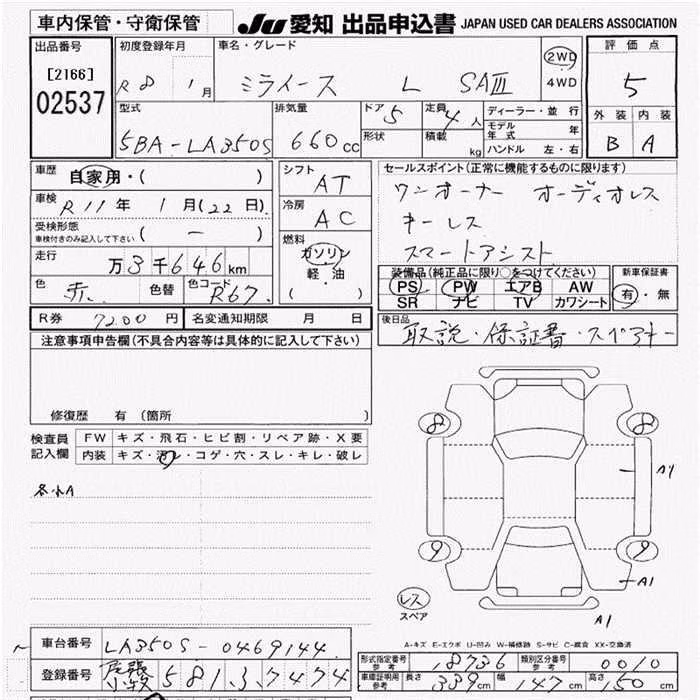 車内保管・守衛保管 JU 愛知 出品申込書 JAPAN USED CAR DEALERS ASSOCIATION
出品番号 初度登録年月 車名・グレード 評価点
[2166] R 8 1月 ミライース L SAⅢ 2WD 4WD 5
02537
型式 排気量 ドア 5 定員 4人 ディーラー・並行 外装 内装
5BA-LA350S 660cc 形状 積載 kg モデル年式 年 B A
ハンドル 左・右
車歴 自家用・( ) シフト AT セールスポイント(正常に機能するものに限ります)
車検 R11年 1月(22日) 冷房 AC ワンオーナー オーディオレス
受検形態 車検付きのみ記入して下さい (ー) キーレス
燃料 ガソリン 軽・油 ( ・ ) スマートアシスト
走行 万3千646km 装備品(純正品に限り○をつけてください) 新車保証書
色 赤 色替 色コード R67 PS PW エアB AW 有・無
SR ナビ TV カワシート
R券 7200円 名変通知期限 月 日 後日品 取説・保証書・スペアキー
注意事項申告欄(不具合内容等は具体的に記入して下さい)
修復歴 有(箇所
検査員記入欄 FW キズ・飛石・ヒビ割・リペア跡・X要
内装 キズ・汚レ・コゲ・穴・スレ・キレ・破レ
各小A
8 8
A1
9 9
A1
レス
スペア
A1
A-キズ E-エクボ U-凹み W-補修跡 S-サビ C-腐食 XX-交換済
車台番号 LA350S-0469144
形式指定番号 参考 18736 類別区分番号 参考 0010
登録番号 尾張小牧 581 ミ 7474 車庫証明用 参考 長さ 339cm 幅 147cm 高さ 150cm